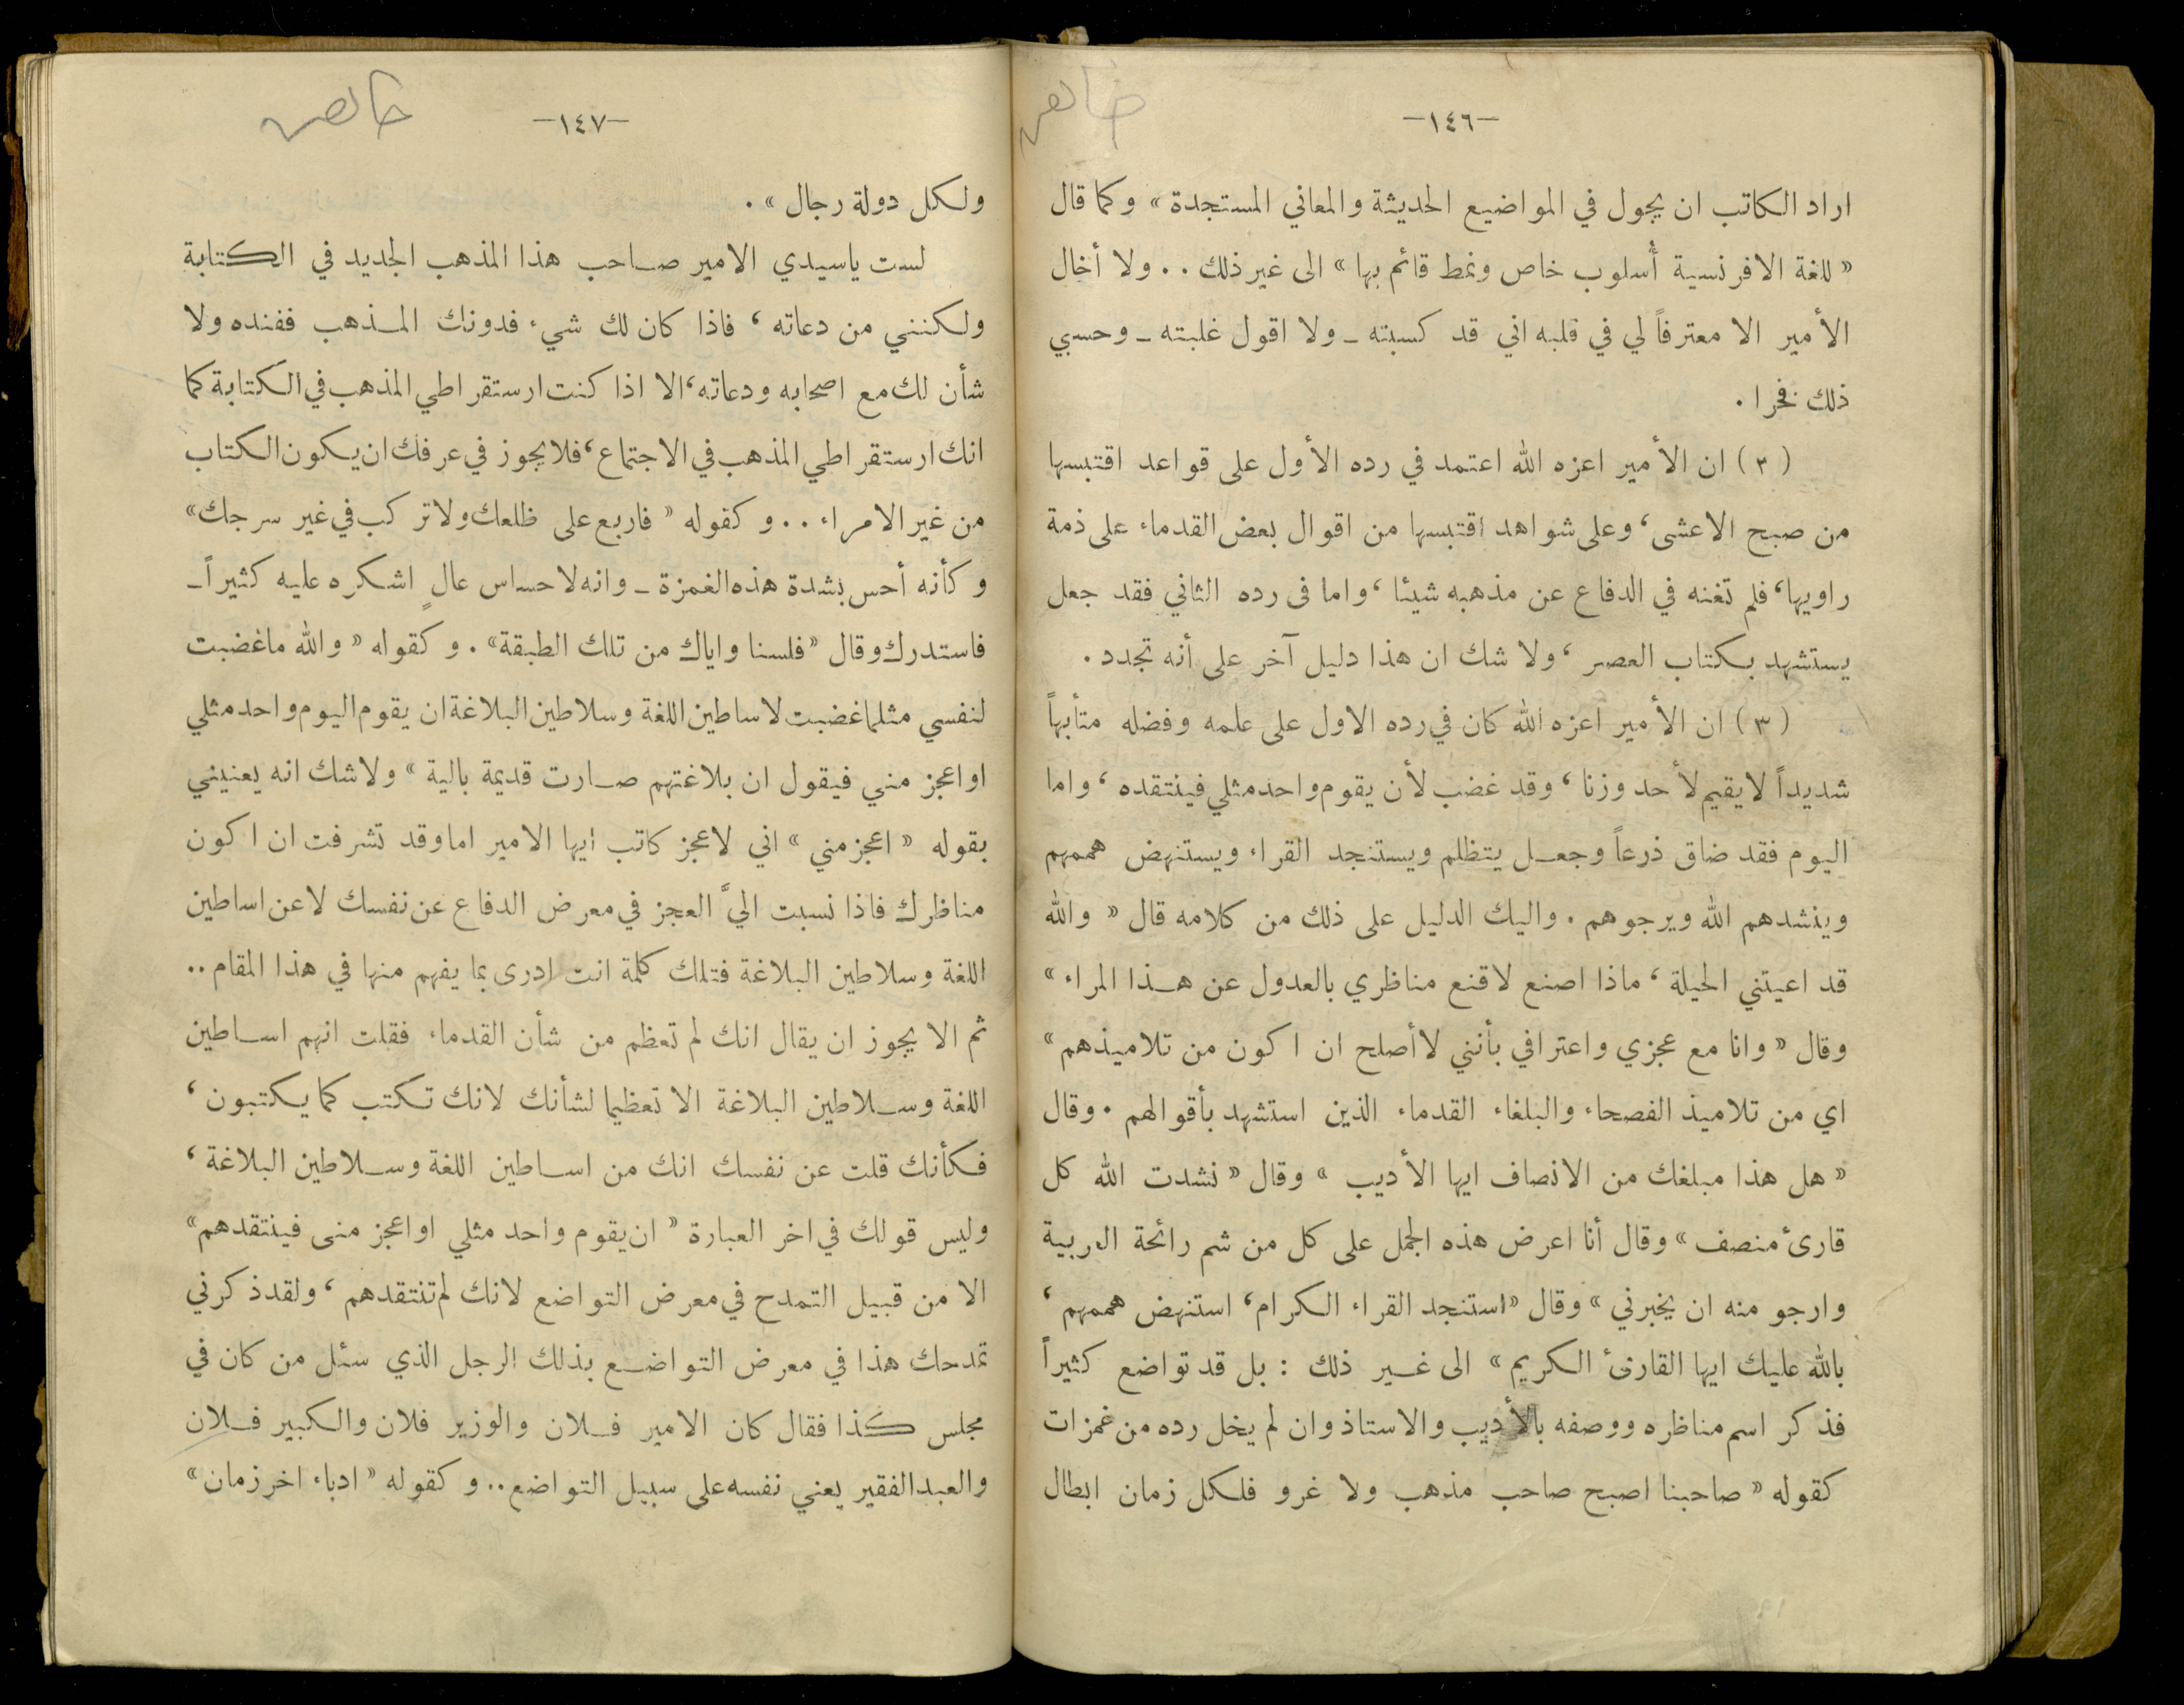 خالص
-١٤٦-
اراد الكاتب ان يجول في المواضيع الحديثة والمعاني المستجدة» وكما قال
« للغة الافرنسية أسلوب خاص ونمط قائم بها» الى غير ذلك .. ولا أخال
الأمير الا معترفاً لي في قلبه اني قد كسبته ـ ولا اقول غلبته ـ وحسبي
ذلك فخرا .
(٢) ان الأمير اعزه الله اعتمد في رده الأول على قواعد اقتبسها
من صبح الاعشى، وعلى شواهد اقتبسها من اقوال بعض القدماء على ذمة
راويها، فلم تغنه في الدفاع عن مذهبه شيئا، واما فى رده الثاني فقد جعل
يستشهد بكتاب العصر، ولا شك ان هذا دليل آخر على أنه تجدد .
(٣) ان الأمير اعزه الله كان في رده الاول على علمه وفضله متأبهاً
شديداً لا يقيم لأحد وزنا، وقد غضب لأن يقوم واحد مثلي فينتقده، واما
اليوم فقد ضاق ذرعاً وجعل يتظلم ويستنجد القراء ويستنهض هممهم
وينشدهم الله ويرجوهم . واليك الدليل على ذلك من كلامه قال « والله
قد اعيتني الحيلة، ماذا اصنع لاقنع مناظري بالعدول عن هذا المراء»
وقال « وانا مع عجزي واعترافي بأنني لا أصلح ان اكون من تلاميذهم»
اي من تلاميذ الفصحاء والبلغاء القدماء الذين استشهد بأقوالهم . وقال
« هل هذا مبلغك من الانصاف ايها الأديب» وقال « نشدت الله كل
قارئ منصف» وقال أنا اعرض هذه الجمل على كل من شم رائحة العربية
وارجو منه ان يخبرني» وقال «استنجد القراء الكرام، استنهض هممهم،
بالله عليك ايها القارئ الكريم» الى غير ذلك : بل قد تواضع كثيراً
فذكر اسم مناظره ووصفه بالأديب والاستاذ وان لم يخل رده من غمزات
كقوله « صاحبنا اصبح صاحب مذهب ولا غرو فلكل زمان ابطال
خالص
-١٤٧-
ولكل دولة رجال» .
لست ياسيدي الامير صاحب هذا المذهب الجديد في الكتابة
ولكنني من دعاته، فاذا كان لك شيء فدونك المذهب ففنده ولا
شأن لك مع اصحابه ودعاته، الا اذا كنت ارستقراطي المذهب في الكتابة كما
انك ارستقراطي المذهب في الاجتماع، فلا يجوز في عرفك ان يكون الكتاب
من غير الامراء .. وكقوله « فاربع على ظلعك ولا تركب في غير سرجك»
وكأنه أحس بشدة هذه الغمزة ـ وانه لاحساس عالٍ اشكره عليه كثيراً ـ
فاستدرك وقال «فلسنا واياك من تلك الطبقة» . وكقوله « والله ماغضبت
لنفسي مثلما غضبت لاساطين اللغة وسلاطين البلاغة ان يقوم اليوم واحد مثلي
او اعجز مني فيقول ان بلاغتهم صارت قديمة بالية» ولاشك انه يعنيني
بقوله « اعجز مني» اني لاعجز كاتب ايها الامير اما وقد تشرفت ان اكون
مناظرك فاذا نسبت اليَّ العجز في معرض الدفاع عن نفسك لا عن اساطين
اللغة وسلاطين البلاغة فتلك كلمة انت ادرى بما يفهم منها في هذا المقام ..
ثم الا يجوز ان يقال انك لم تعظم من شأن القدماء فقلت انهم اساطين
اللغة وسلاطين البلاغة الا تعظيما لشأنك لانك تكتب كما يكتبون،
فكأنك قلت عن نفسك انك من اساطين اللغة وسلاطين البلاغة،
وليس قولك في اخر العبارة « ان يقوم واحد مثلي او اعجز منى فينتقدهم»
الا من قبيل التمدح في معرض التواضع لانك لم تنتقدهم، ولقد ذكرني
تمدحك هذا في معرض التواضع بذلك الرجل الذي سئل من كان في
مجلس كذا فقال كان الامير فلان والوزير فلان والكبير فلان
والعبد الفقير يعني نفسه على سبيل التواضع .. وكقوله « ادباء اخر زمان»